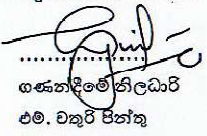 ගණන්දීමේ නිලධාරි
එම්. චතුරි පින්තු